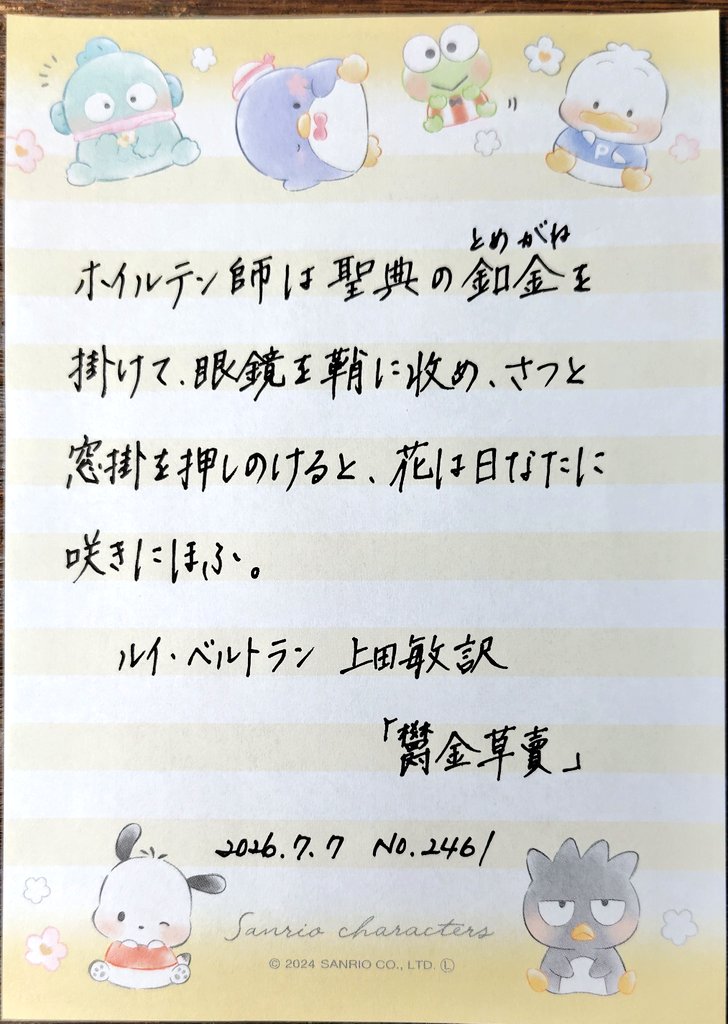 とめがね
ホイルテン師は聖典の釦金を
掛けて、眼鏡を鞘に收め、さつと
窓掛を押しのけると、花は日なたに
咲きにほふ。
ルイ・ベルトラン 上田敏訳
「欝金草賣」
2026.7.7 No.2461
P
Sanrio characters
© 2024 SANRIO CO., LTD. Ⓛ